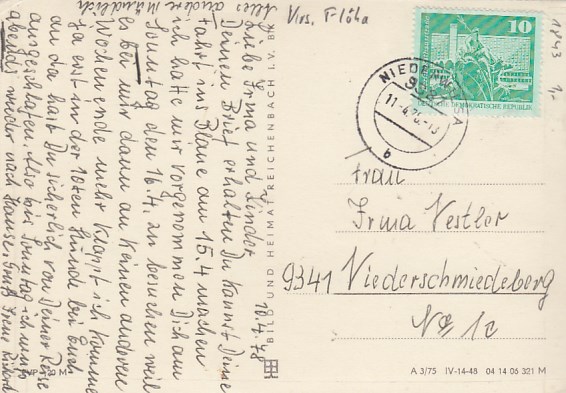 Vrs. Flöha
1843
1,-
10
DEUTSCHE DEMOKRATISCHE REPUBLIK
11-4.78-13
b
Frau
Irma Vestler
9341 Niederschmiedeberg
No 1c
10.4.78
Liebe Irma und Kinder
Deinen Brief erhalten Du kannst Deine
Fahrt ins Blaue am 15.4 machen
ich hatte mir vorgenommen Dich am
Sonntag den 16.4. zu besuchen weil
es bei mir dann an keinen anderen
Wochenende mehr klappt ich komme
ja erst in der 10ten Stunde bei Euch
an da hast Du sicherlich von Deiner Reise
ausgeschlafen. Also bis Sonntag ich muß
abends wieder nach Hause. Gruß
Alles andere Mündlich
BILD UND HEIMAT REICHENBACH I. V. BK
A 3/75 IV-14-48 04 14 06 321 M